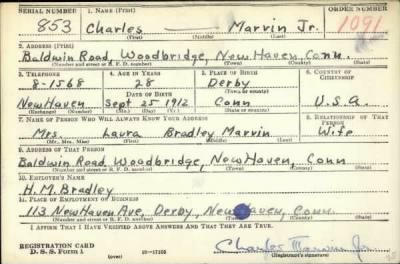 SERIAL NUMBER 1. NAME (Print) ORDER NUMBER
853 Charles — Marvin Jr. 1091
(First) (Middle) (Last)
2. ADDRESS (Print)
Baldwin Road, Woodbridge, New Haven, Conn.
(Number and street or R. F. D. number) (Town) (County) (State)
3. TELEPHONE 4. AGE IN YEARS 5. PLACE OF BIRTH 6. COUNTRY OF CITIZENSHIP
8-1568 28 Derby
DATE OF BIRTH (Town or county)
New Haven Sept 25 1912 Conn U.S.A.
(Exchange) (Number) (Mo.) (Day) (Yr.) (State or country)
7. NAME OF PERSON WHO WILL ALWAYS KNOW YOUR ADDRESS 8. RELATIONSHIP OF THAT PERSON
Mrs. Laura Bradley Marvin Wife
(Mr., Mrs., Miss) (First) (Middle) (Last)
9. ADDRESS OF THAT PERSON
Baldwin Road, Woodbridge, New Haven, Conn
(Number and street or R. F. D. number) (Town) (County) (State)
10. EMPLOYER'S NAME
H. M. Bradley
11. PLACE OF EMPLOYMENT OR BUSINESS
113 New Haven Ave, Derby, New Haven, Conn.
(Number and street or R. F. D. number) (Town) (County) (State)
I AFFIRM THAT I HAVE VERIFIED ABOVE ANSWERS AND THAT THEY ARE TRUE.
REGISTRATION CARD
D. S. S. FORM 1 (over) Charles Marvin Jr.
(Registrant's signature)